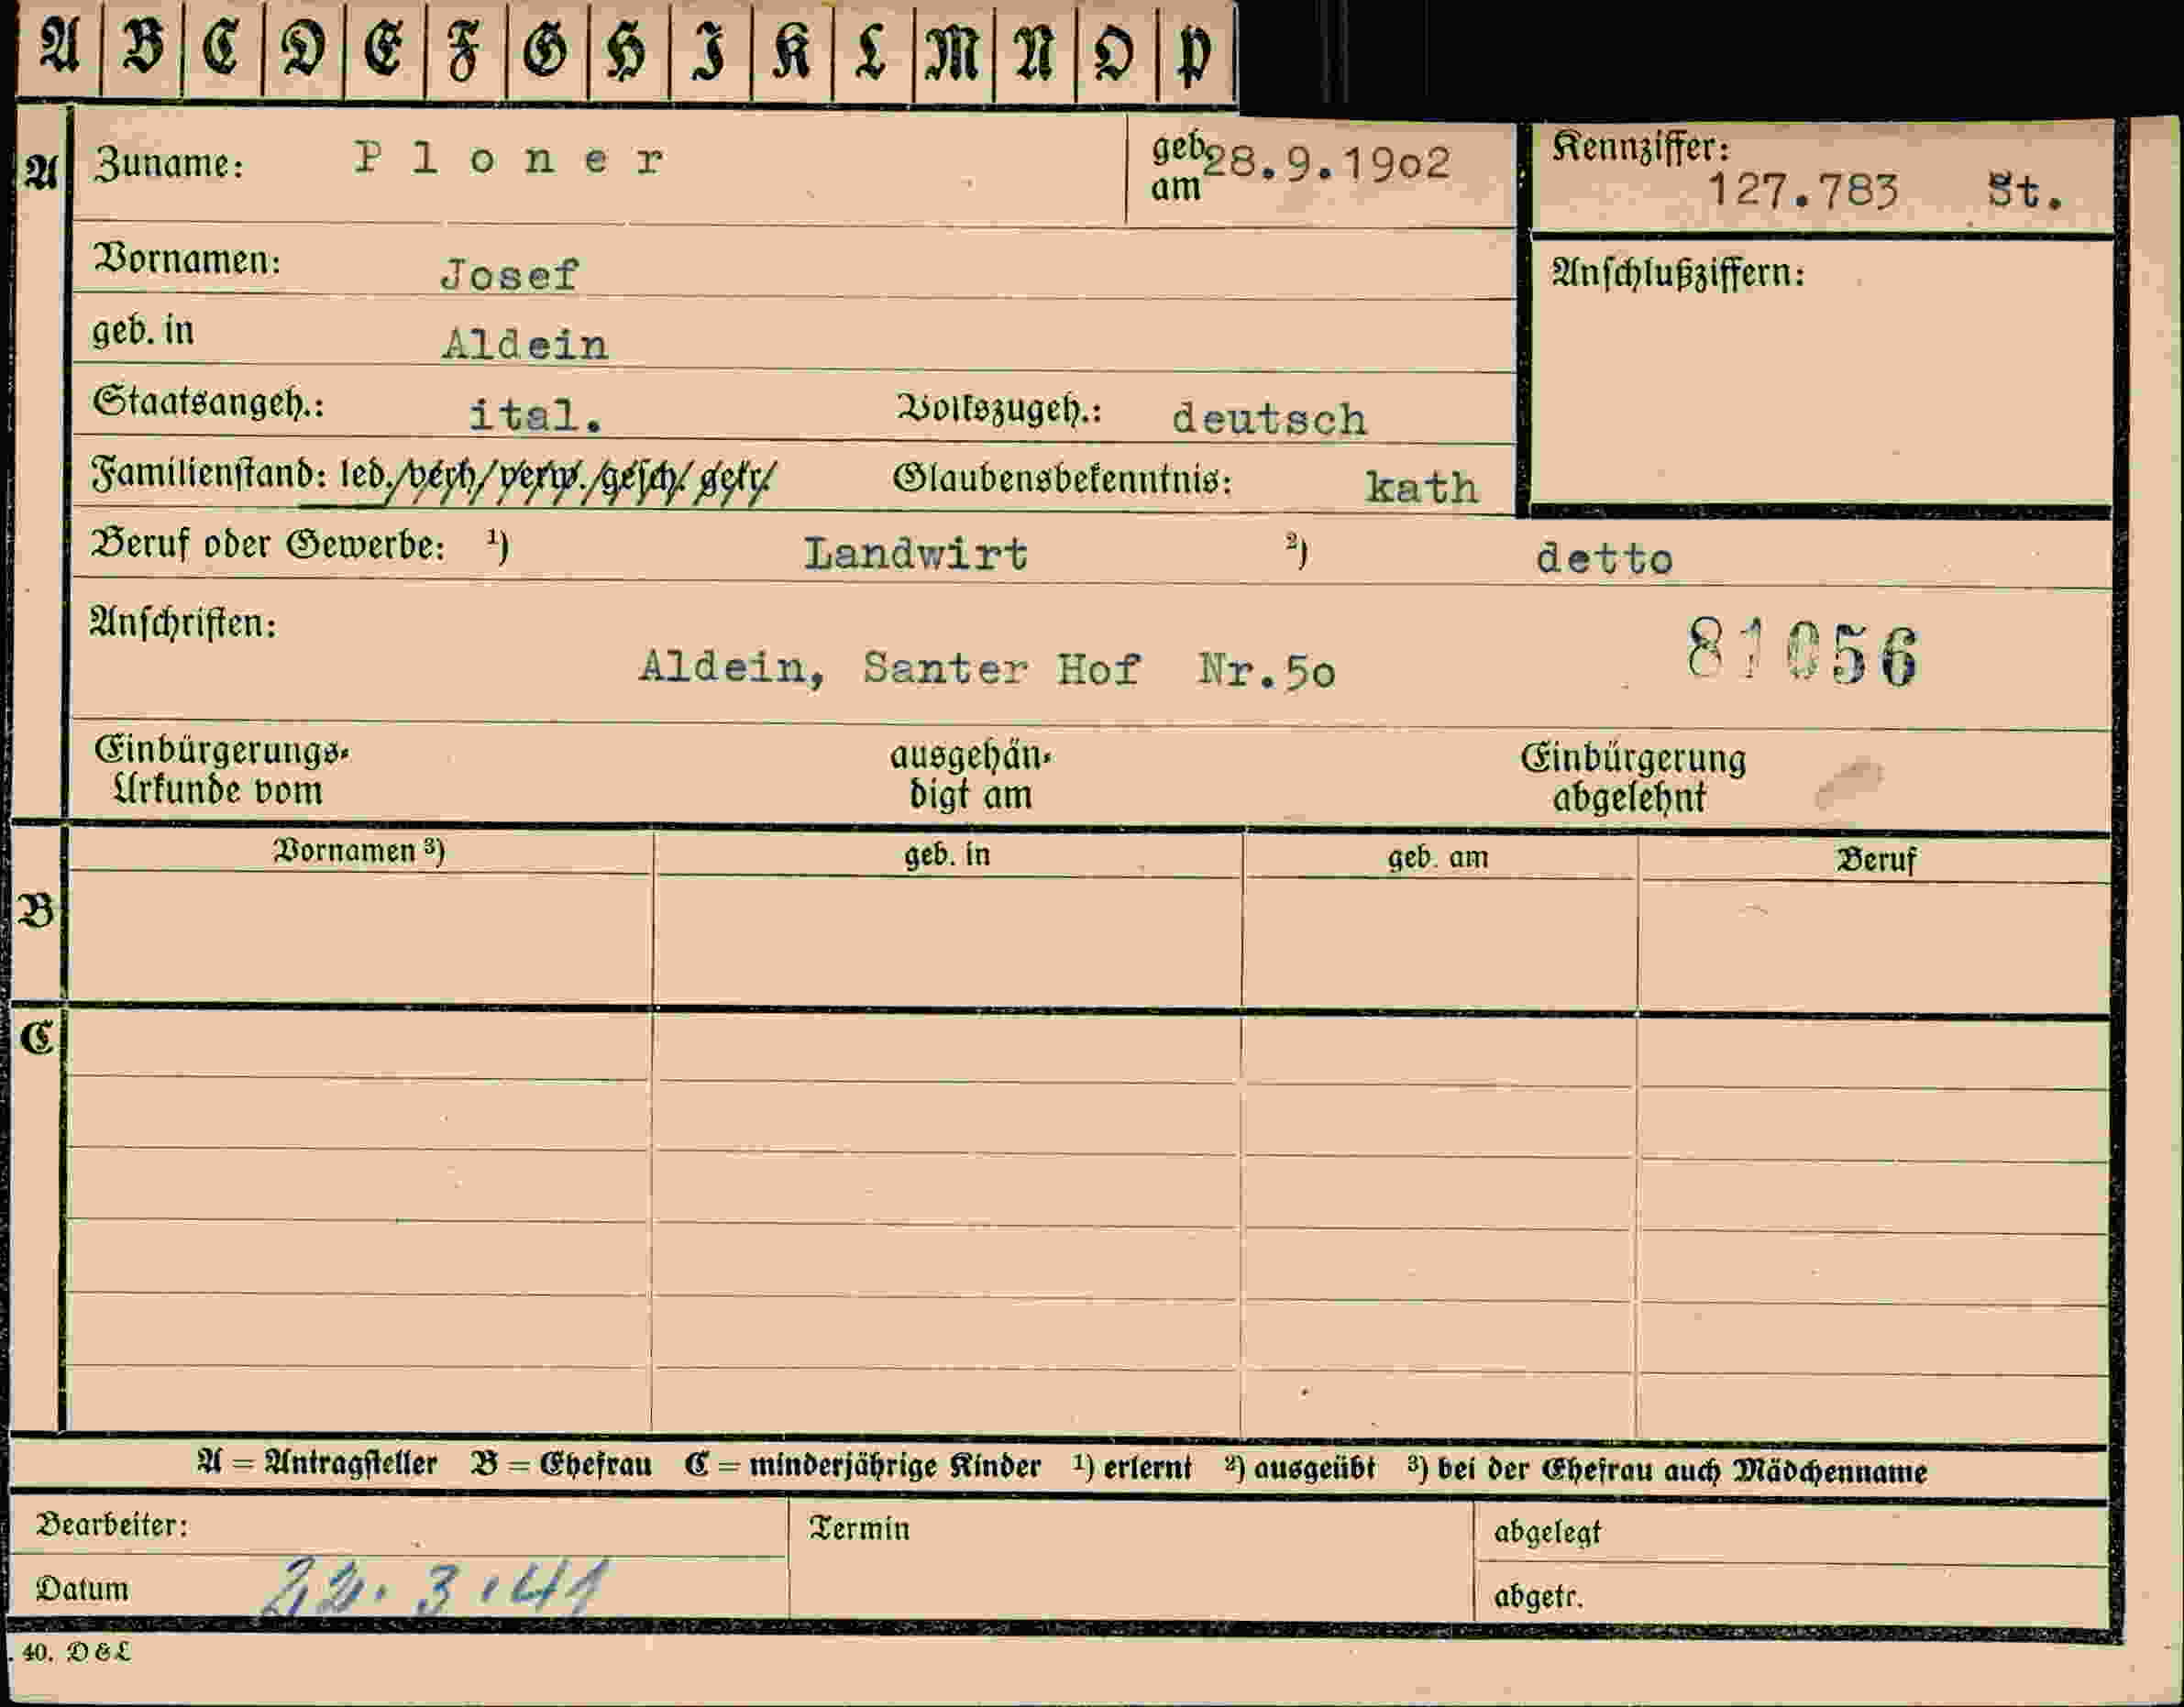 A B C D E F G H I K L M N O P
A Zuname: Ploner geb. am 28.9.1902 Kennziffer: 127.783 St.
Vornamen: Josef Anschlußziffern:
geb. in Aldein
Staatsangeh.: ital. Volkszugeh.: deutsch
Familienstand: led./verh/verw./gesch/getr/ Glaubensbekenntnis: kath
Beruf oder Gewerbe: ¹) Landwirt ²) detto
Anschriften: Aldein, Santer Hof Nr.50 81056
Einbürgerungs- ausgehän- Einbürgerung
Urkunde vom digt am abgelehnt
Vornamen ³) geb. in geb. am Beruf
B
C
A = Antragsteller B = Ehefrau C = minderjährige Kinder ¹) erlernt ²) ausgeübt ³) bei der Ehefrau auch Mädchenname
Bearbeiter: Termin abgelegt
Datum 22.3.41 abgetr.
40. D & L